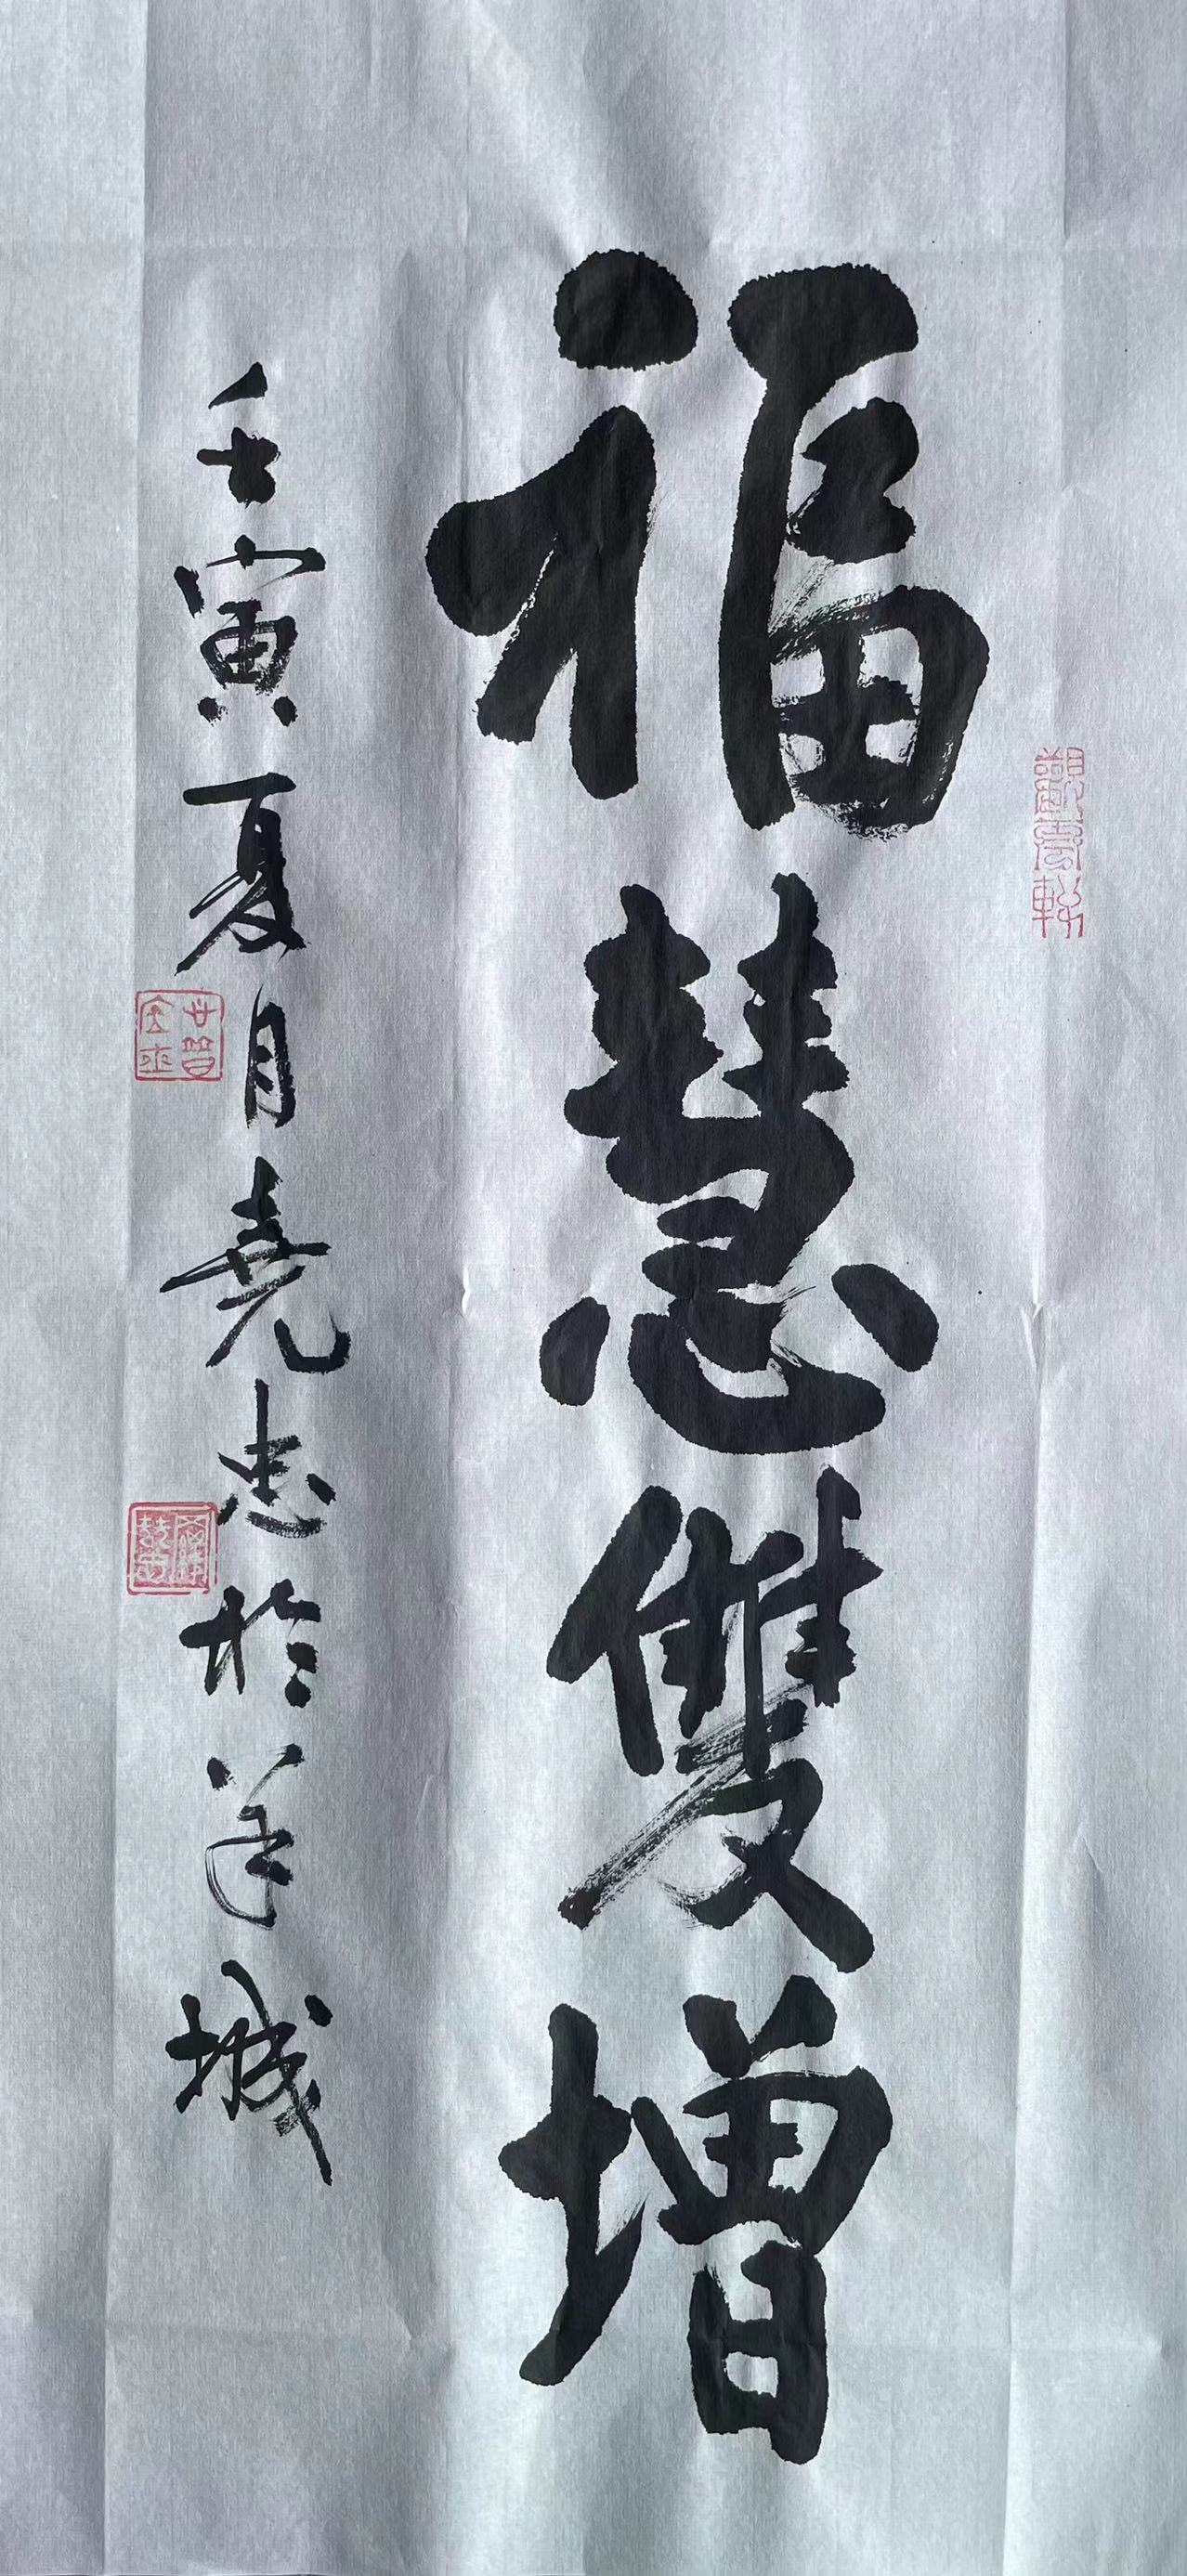 福慧雙增
壬寅夏月堯忠於羊城